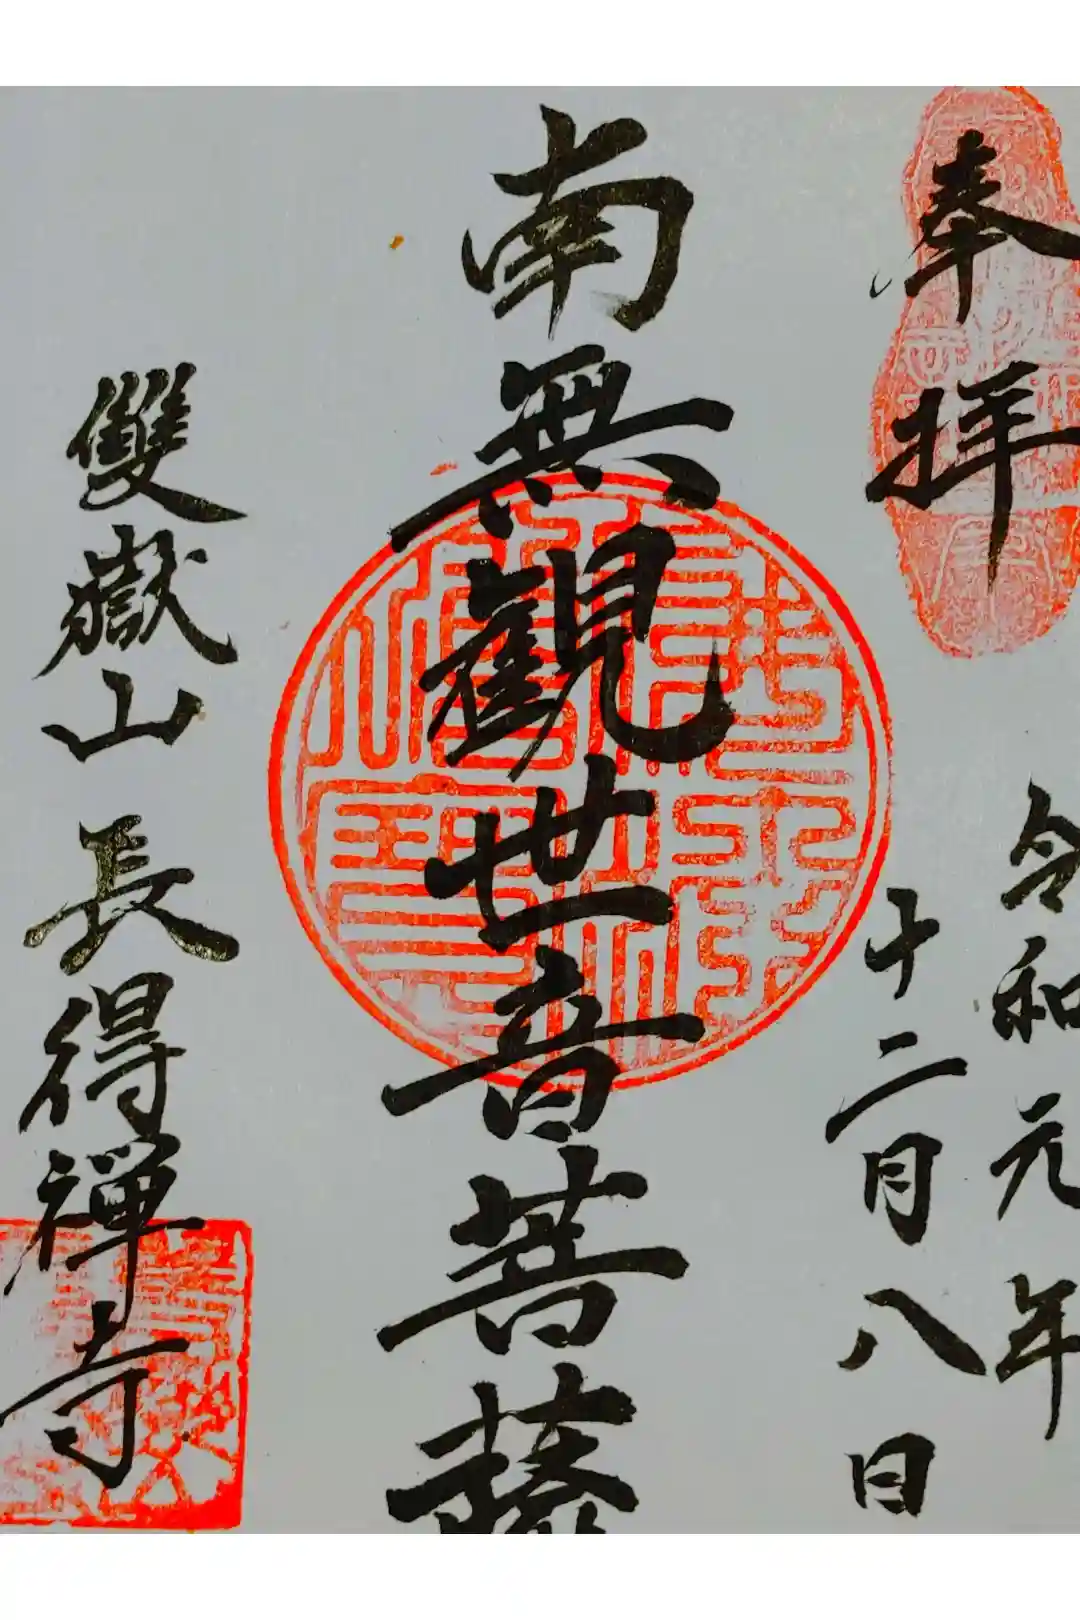 奉拝
令和元年
十二月八日
南無観世音菩薩
雙嶽山 長得禅寺